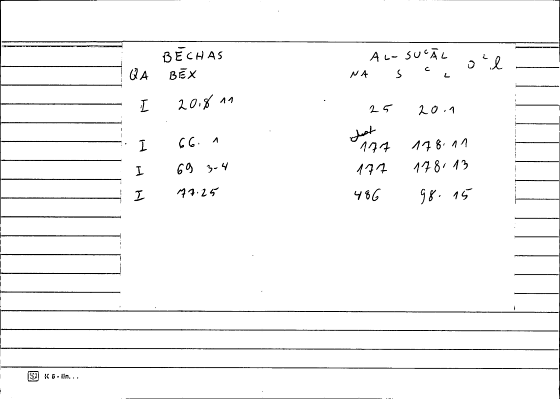 BĒCHAS AL-SUʿĀL
QA BĒX NA S ʿ L
I 20.8 11 25 20.1
I 66. 1 177 178.11
I 69 3-4 177 178.13
I 77.25 486 98.15
K 6